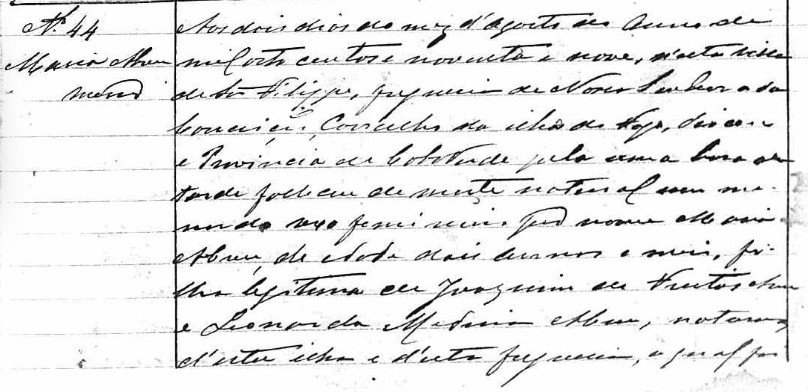 Nº 44
Maria Abreu
menor
Aos dois dias do mez d'Agosto do Anno de
mil oito centos e noventa e nove, n'esta villa
de São Filippe, freguesia de Nossa Senhora da
Conceição, Concelho da ilha do Fogo, diocese
e Provincia de Cabo Verde pela uma hora da
tarde falleceu de morte natural uma me-
nor do sexo feminino por nome Maria
Abreu, de idade dois annos e meio, fi-
lha legitima de Joaquim de Freitas Abreu
e Leonor da Medina Abreu, naturaes
d'esta ilha e d'esta freguesia, a qual foi